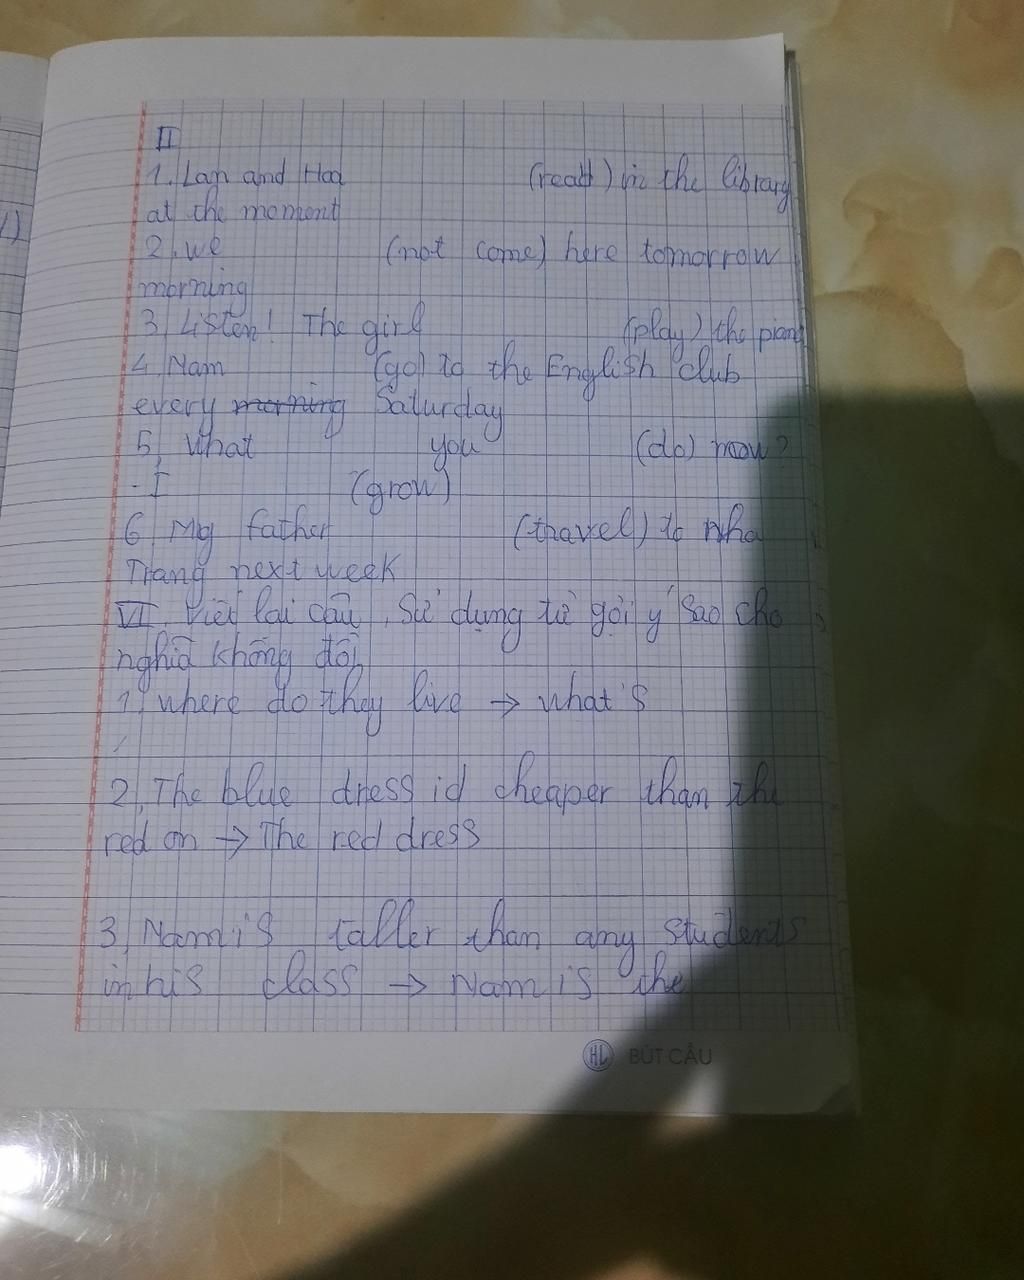 II
1. Lan and Hoa (read) in the library
at the moment
2. we (not come) here tomorrow
morning
3, Listen! The girl (play) the piano
4. Nam (go) to the English club
every morning Saturday
5, What you (do) now?
- I (grow)
6 My father (travel) to Nha
Trang next week
VI. Viết lại câu, sử dụng từ gợi ý sao cho
nghĩa không đổi
1, where do they live → what's
2, The blue dress id cheaper than the
red on → The red dress
3, Nam is taller than any students
in his class → Nam is the
HL BÚT CẦU